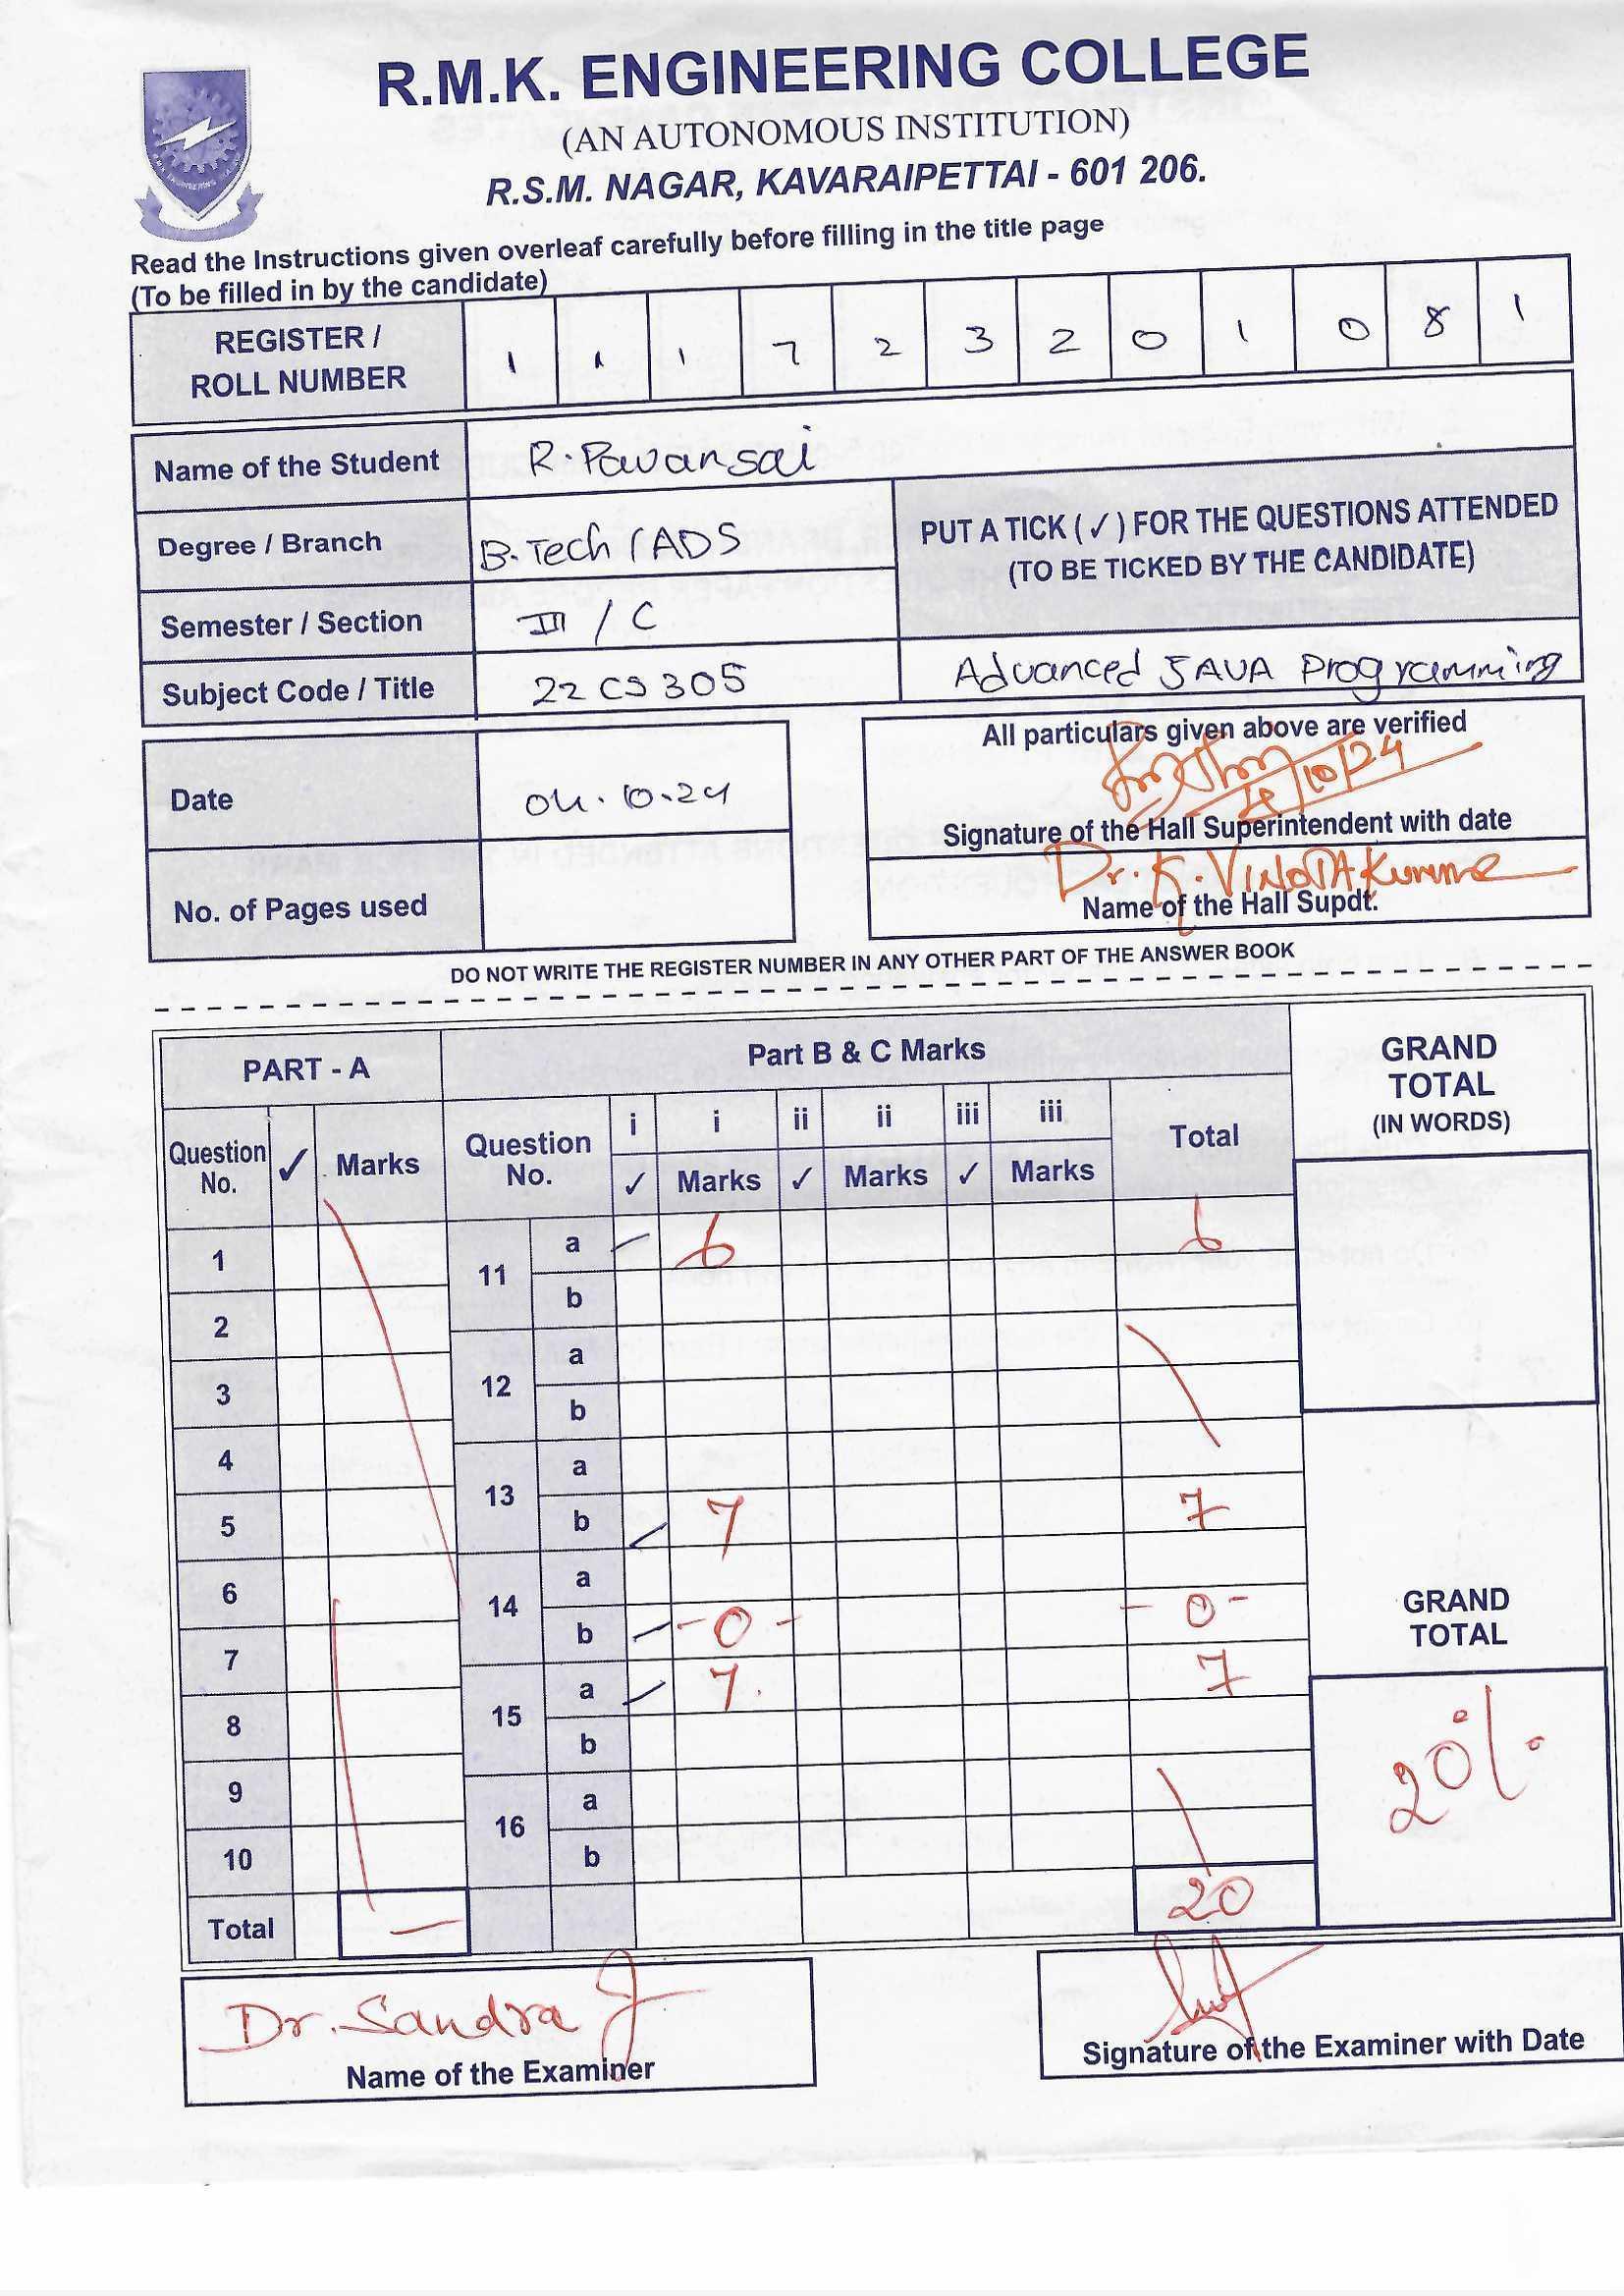 R.M.K. ENGINEERING COLLEGE
(AN AUTONOMOUS INSTITUTION)
R.S.M. NAGAR, KAVARAIPETTAI - 601 206.
Read the Instructions given overleaf carefully before filling in the title page
(To be filled in by the candidate)
REGISTER / ROLL NUMBER 1 1 1 7 2 3 2 0 1 0 8 1
Name of the Student R. Pavansai
Degree / Branch B.Tech / ADS
PUT A TICK (✓) FOR THE QUESTIONS ATTENDED
(TO BE TICKED BY THE CANDIDATE)
Semester / Section III / C
Subject Code / Title 22CS305 Advanced JAVA Programming
All particulars given above are verified
Date 04.10.24
10/24
Signature of the Hall Superintendent with date
Dr. K. 
No. of Pages used
Name of the Hall Supdt.
DO NOT WRITE THE REGISTER NUMBER IN ANY OTHER PART OF THE ANSWER BOOK
PART - A Part B & C Marks GRAND TOTAL (IN WORDS)
Question No. ✓ Marks Question No. i i ii ii iii iii Total
✓ Marks ✓ Marks ✓ Marks
1 11 a 6 6
b
2 12 a
3 b
4 13 a
5 b 7 7
6 14 a
7 b - 0 - - 0 -
8 15 a 7. 7
b
9 16 a
10 b
Total — 20
GRAND TOTAL
20%
Dr. Sandra J
Name of the Examiner
Signature of the Examiner with Date